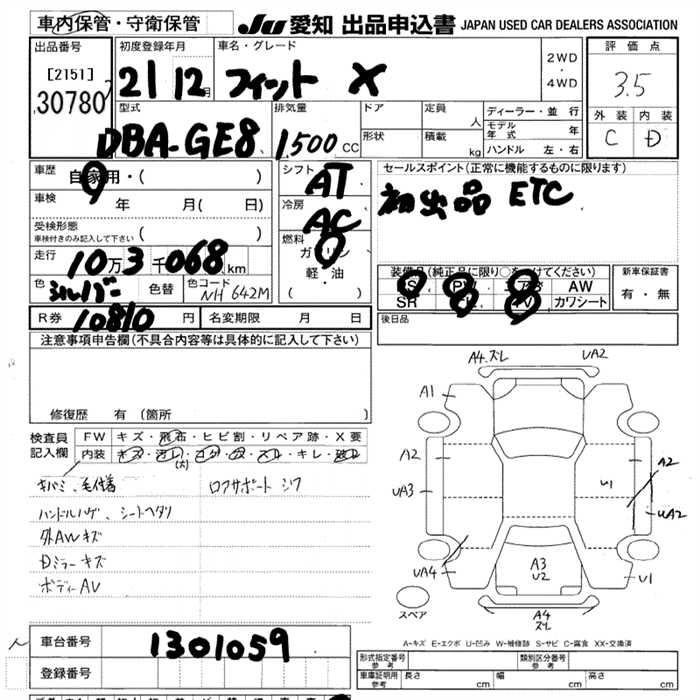 車内保管・守衛保管
JU 愛知 出品申込書 JAPAN USED CAR DEALERS ASSOCIATION
出品番号
[2151]
30780
初度登録年月
21 12月
車名・グレード
フィット X
2WD
・
4WD
評価点
3.5
外装 内装
C D
型式
DBA-GE8
排気量
1,500 CC
ドア
形状
定員 人
積載 kg
ディーラー・並行
モデル年式 年
ハンドル 左・右
車歴
自家用・( )
車検
年 月( 日)
受検形態
車検付きのみ記入して下さい ( )
走行
10万3千068km
色
シルバー
色替
色コード
NH642M
シフト
AT
冷房
AC
燃料
ガソリン
軽・油
( )
セールスポイント(正常に機能するものに限ります)
初出品 ETC
装備品(純正品に限り○をつけてください)
PS PW エアB AW
SR TV カワシート
新車保証書
有・無
R券
10810 円
名変期限 月 日
後日品
注意事項申告欄(不具合内容等は具体的に記入して下さい)
修復歴 有 (箇所
検査員
記入欄
FW キズ・飛石・ヒビ割・リペア跡・X要
内装 キズ・汚レ・コゲ・穴・スレ・キレ・破レ
(大)
キバミ、毛付着
ロアサポート シワ
ハンドルハゲ、シートヘタリ
外AWキズ
Dミラーキズ
ボディーAV
A4.ズレ UA2
A1
A2 A2
UA3 U1
UA2
UA4 A3
U2 U1
スペア A4
ズレ
A-キズ E-エクボ U-凹み W-補修跡 S-サビ C-腐食 XX-交換済
車台番号
1301059
登録番号
形式指定番号
参考
類別区分番号
参考
車庫証明用
参考
長さ cm 幅 cm 高さ cm